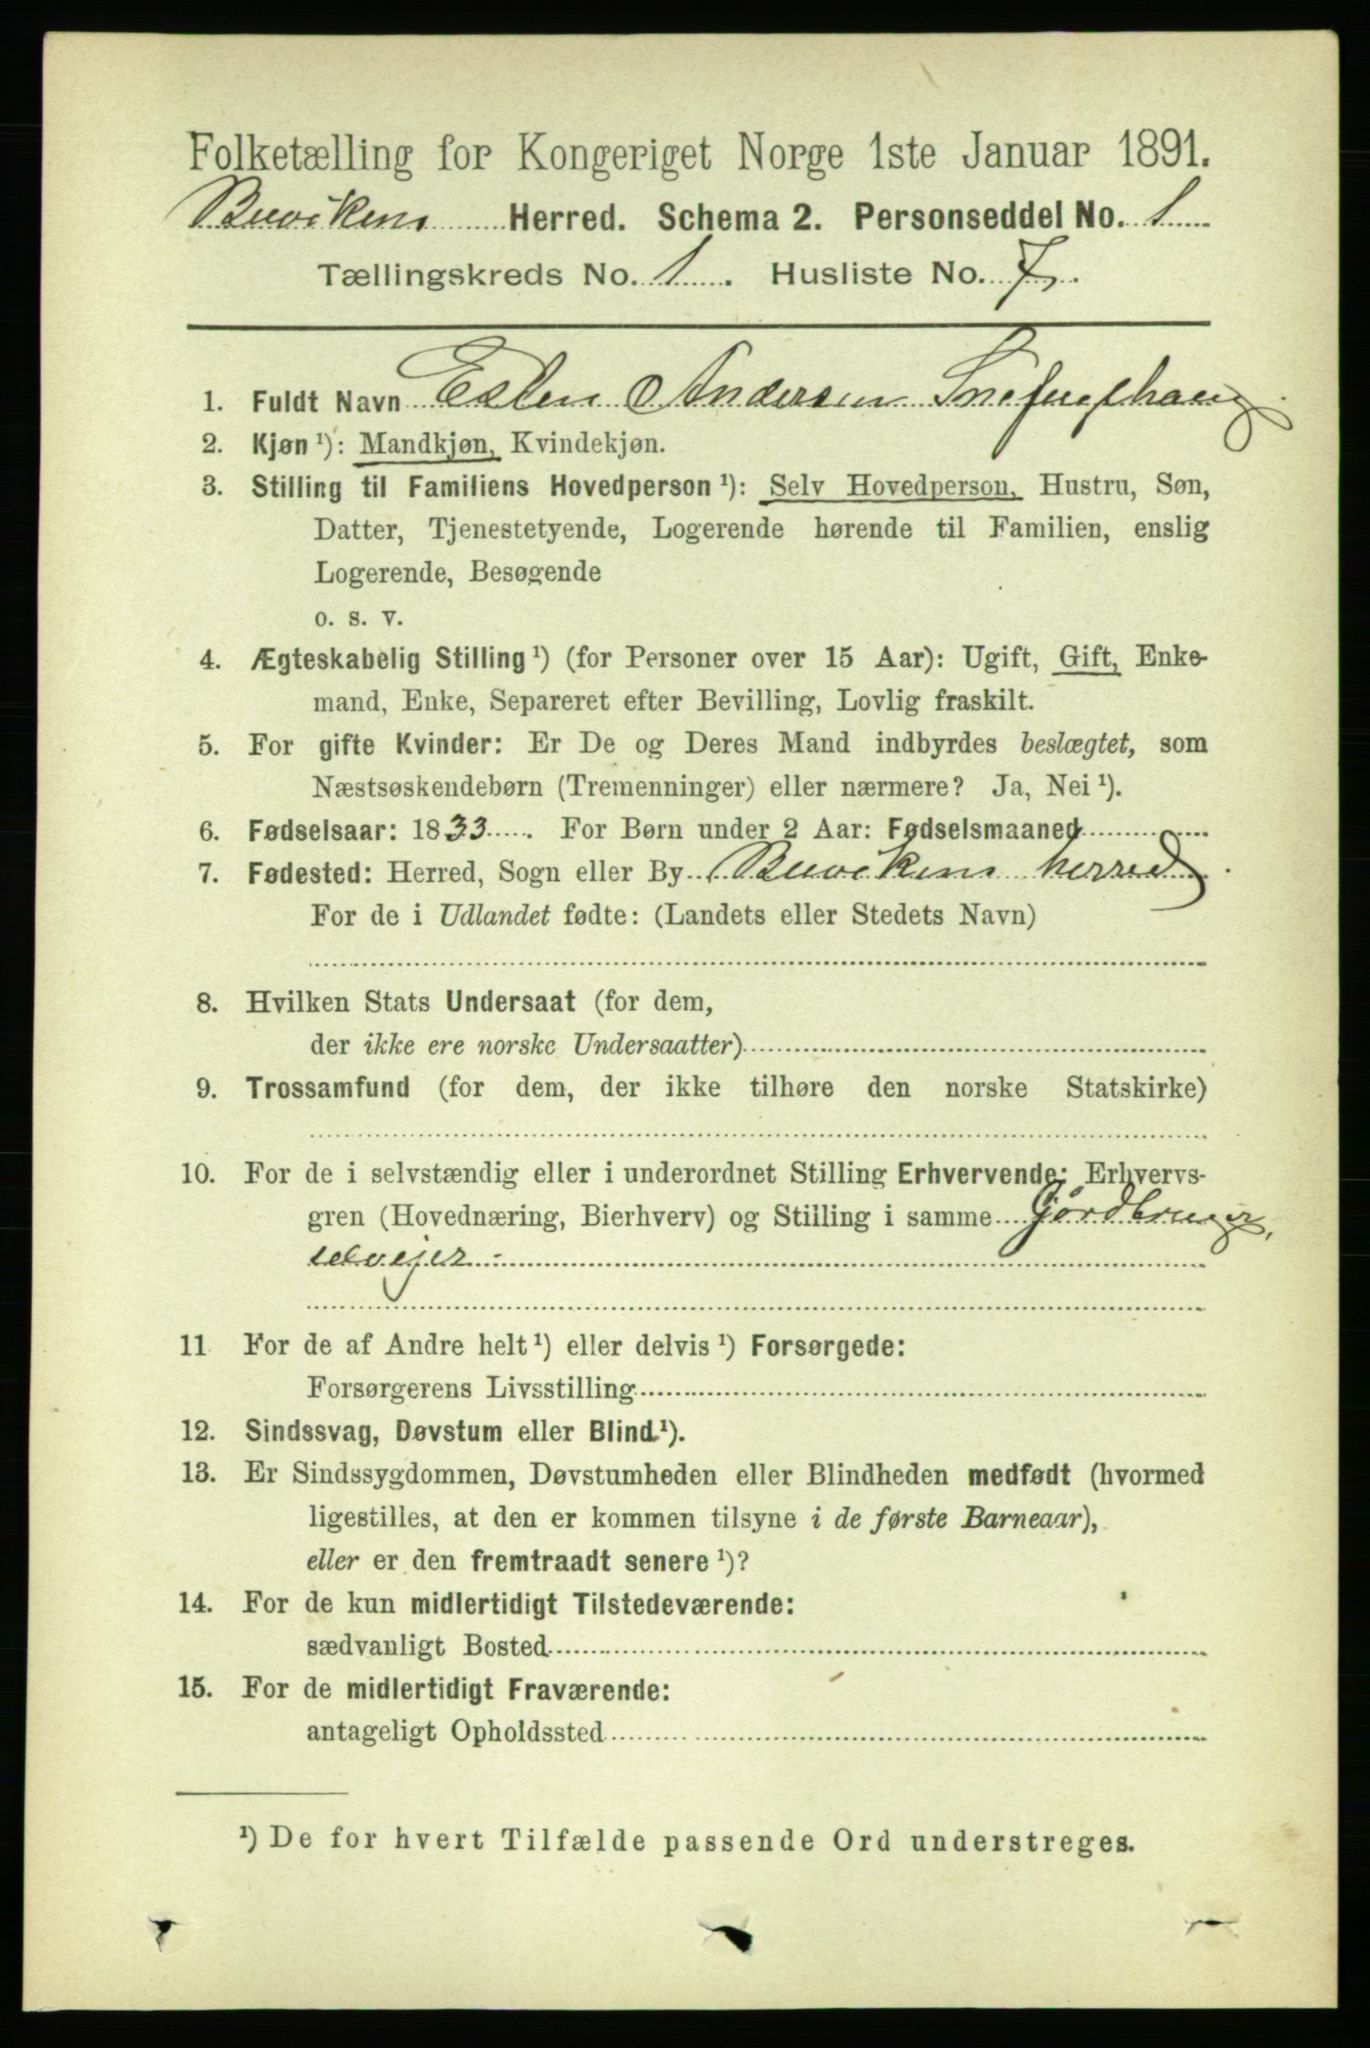 Folketælling for Kongeriget Norge 1ste Januar 1891.
Buvikens Herred. Schema 2. Personseddel No. 1
Tællingskreds No. 1. Husliste No. 7.
1. Fuldt Navn Esten Andersen
2. Kjøn ¹): Mandkjøn, Kvindekjøn.
3. Stilling til Familiens Hovedperson ¹): Selv Hovedperson, Hustru, Søn,
Datter, Tjenestetyende, Logerende hørende til Familien, enslig
Logerende, Besøgende
o. s. v.
4. Ægteskabelig Stilling ¹) (for Personer over 15 Aar): Ugift, Gift, Enke-
mand, Enke, Separeret efter Bevilling, Lovlig fraskilt.
5. For gifte Kvinder: Er De og Deres Mand indbyrdes beslægtet, som
Næstsøskendebørn (Tremenninger) eller nærmere? Ja, Nei ¹).
6. Fødselsaar: 1833. For Børn under 2 Aar: Fødselsmaaned
7. Fødested: Herred, Sogn eller By Buvikens herred
For de i Udlandet fødte: (Landets eller Stedets Navn)
8. Hvilken Stats Undersaat (for dem,
der ikke ere norske Undersaatter)
9. Trossamfund (for dem, der ikke tilhøre den norske Statskirke)
10. For de i selvstændig eller i underordnet Stilling Erhvervende: Erhvervs-
gren (Hovednæring, Bierhverv) og Stilling i samme Gårdbruger,
selvejer
11 For de af Andre helt ¹) eller delvis ¹) Forsørgede:
Forsørgerens Livsstilling
12. Sindssvag, Døvstum eller Blind ¹).
13. Er Sindssygdommen, Døvstumheden eller Blindheden medfødt (hvormed
ligestilles, at den er kommen tilsyne i de første Barneaar),
eller er den fremtraadt senere ¹)?
14. For de kun midlertidigt Tilstedeværende:
sædvanligt Bosted
15. For de midlertidigt Fraværende:
antageligt Opholdssted
¹) De for hvert Tilfælde passende Ord understreges.